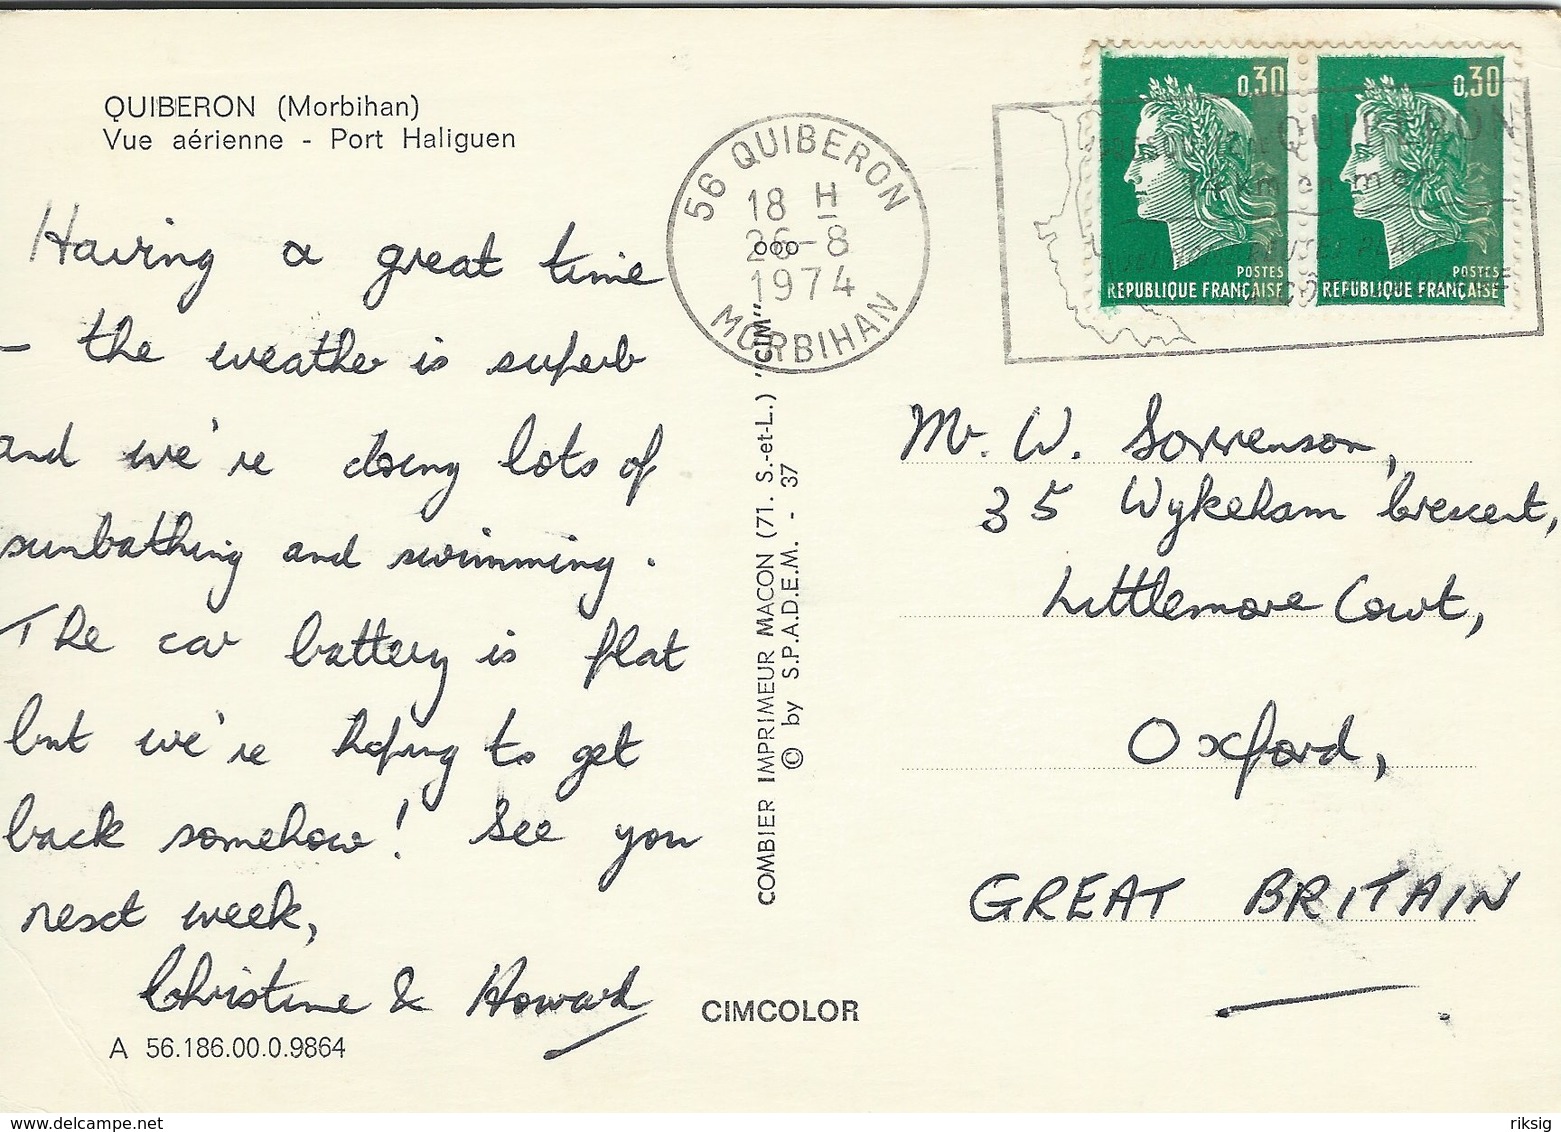 QUIBERON (Morbihan)
Vue aérienne - Port Haliguen
Having a great time
- the weather is superb
and we're doing lots of
sunbathing and swimming.
The car battery is flat
but we're hoping to get
back somehow! See you
next week,
Christine & Howard
A 56.186.00.0.9864
CIMCOLOR
COMBIER IMPRIMEUR MACON (71. S.-et-L.) "CIM"
© by S.P.A.D.E.M. - 37
56 QUIBERON
18 H
26-8
1974
MORBIHAN
0,30
POSTES
REPUBLIQUE FRANÇAISE
0,30
POSTES
REPUBLIQUE FRANÇAISE
QUIBERON
en mer
Mr. W. Sorrenson,
35 Wykeham Crescent,
Littlemore Court,
Oxford,
GREAT BRITAIN
riksig